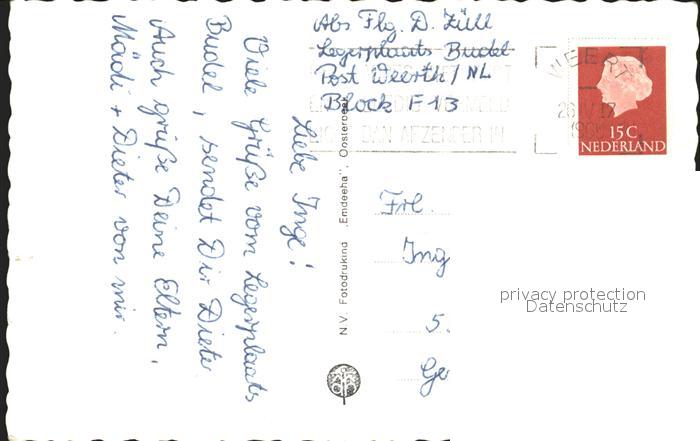 Abs Flg. D. Züll
Legerplaats Budel
Post Weerth / NL
Block F 13
WEERT
15 C
NEDERLAND
DAN AFZENDER IN
Liebe Inge!
Viele Grüße vom Legerplaats
Budel, sendet Dir Dieter
Auch grüße Deine Eltern,
Mädi + Dieter von mir.
N.V. Fotodrukind „Emdeeha", Oosterbeek
Frl.
Ing
5.
Ge
privacy protection
Datenschutz